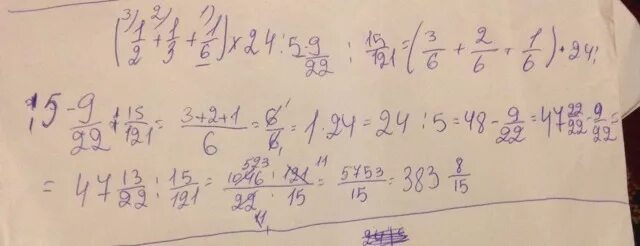 3) 2) 1)
(1/2 + 1/3 + 1/6) × 24 : 5 - 9/22 : 15/121 = (3/6 + 2/6 + 1/6) · 24 :
: 5 - 9/22 : 15/121 = (3+2+1)/6 = 6/6 = 1 · 24 = 24 : 5 = 48 - 9/22 = 47 22/22 - 9/22 =
= 47 13/22 : 15/121 = 523 1046 : 121 11 / 22 · 15 11 = 5753/15 = 383 8/15